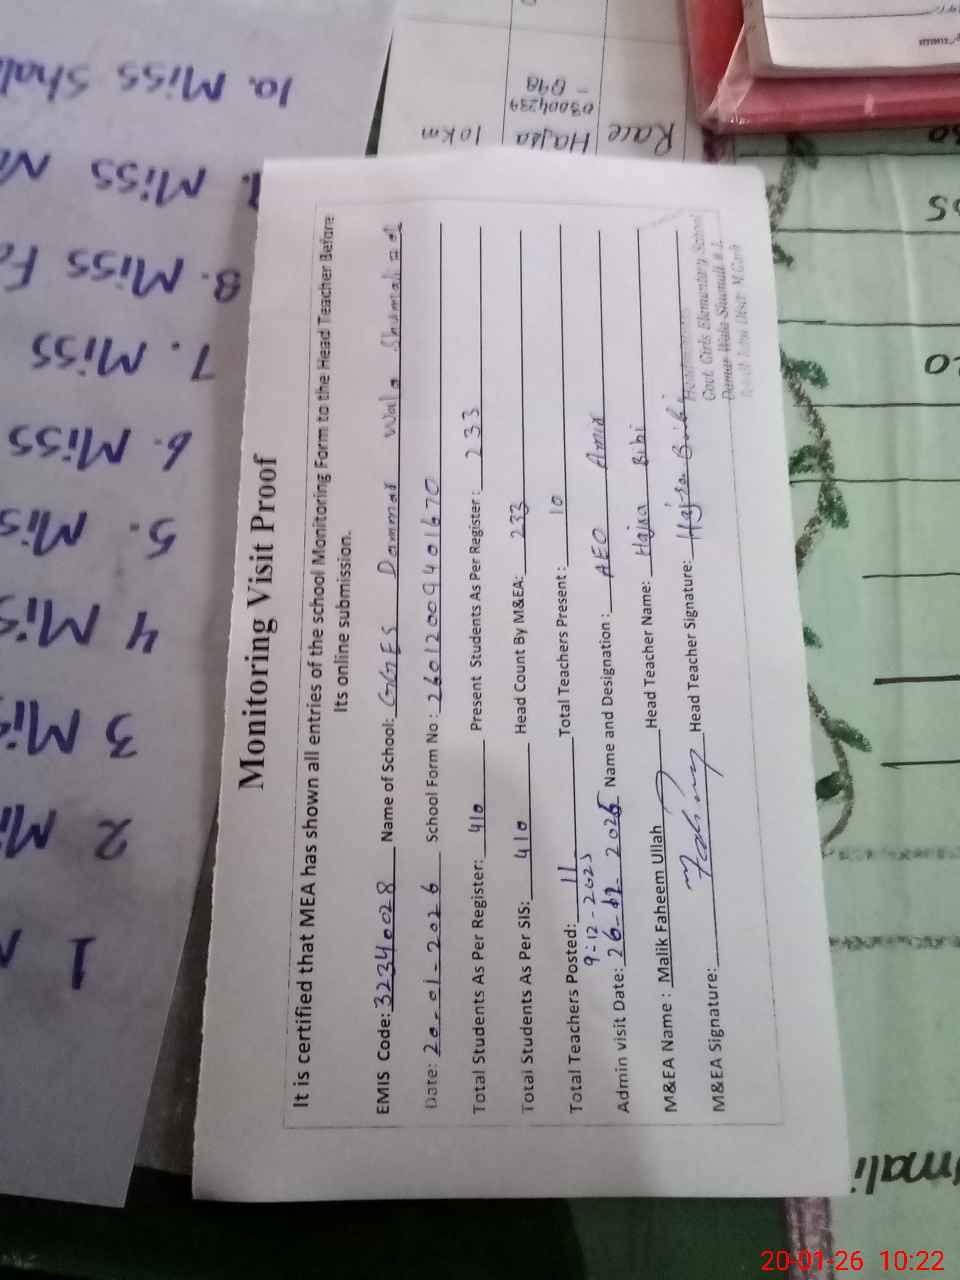 Monitoring Visit Proof
It is certified that MEA has shown all entries of the school Monitoring Form to the Head Teacher Before
Its online submission.
EMIS Code: 32340028 Name of School: GGES Dammar Wala Shumali
Date: 20-01-2026 School Form No: 26012009401670
Total Students As Per Register: 410 Present Students As Per Register: 233
Total Students As Per SIS: 410 Head Count By M&EA: 233
Total Teachers Posted: 11 Total Teachers Present: 10
9-12-2025
Admin visit Date: 26-12-2025 Name and Designation: AEO Amir
M&EA Name: Malik Faheem Ullah Head Teacher Name: Hajra Bibi
M&EA Signature: Head Teacher Signature: Hajra Bibi
Govt. Girls Elementary School
10. Miss
Miss
8. Miss
7. Miss
6. Miss
5. Mis
4 Mis
3 Mis
2 Mi
1
Race Hajra 10km
20-01-26 10:22